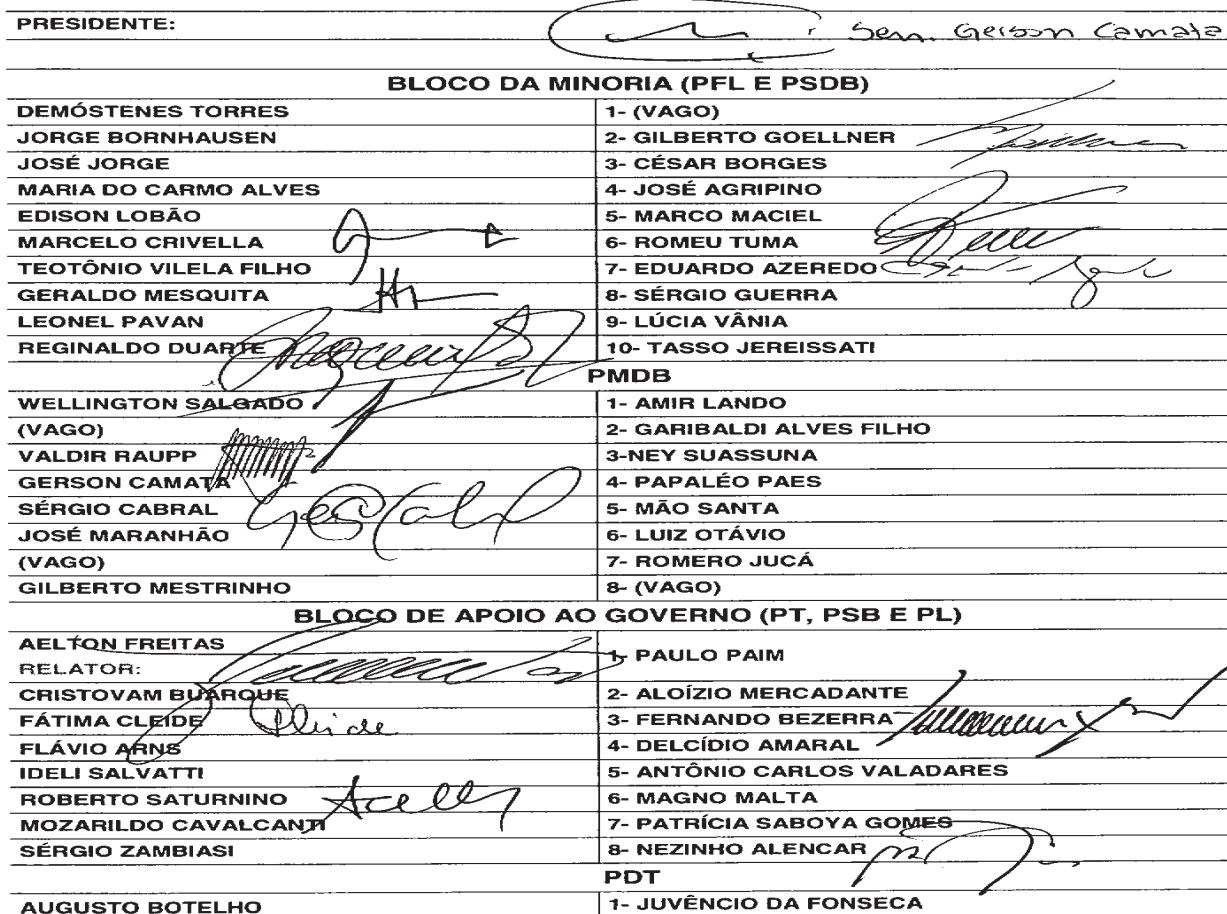 PRESIDENTE: Sen. Gerson Camata
BLOCO DA MINORIA (PFL E PSDB)
DEMÓSTENES TORRES 1- (VAGO)
JORGE BORNHAUSEN 2- GILBERTO GOELLNER
JOSÉ JORGE 3- CÉSAR BORGES
MARIA DO CARMO ALVES 4- JOSÉ AGRIPINO
EDISON LOBÃO 5- MARCO MACIEL
MARCELO CRIVELLA 6- ROMEU TUMA
TEOTÔNIO VILELA FILHO 7- EDUARDO AZEREDO
GERALDO MESQUITA 8- SÉRGIO GUERRA
LEONEL PAVAN 9- LÚCIA VÂNIA
REGINALDO DUARTE 10- TASSO JEREISSATI
PMDB
WELLINGTON SALGADO 1- AMIR LANDO
(VAGO) 2- GARIBALDI ALVES FILHO
VALDIR RAUPP 3-NEY SUASSUNA
GERSON CAMATA 4- PAPALÉO PAES
SÉRGIO CABRAL 5- MÃO SANTA
JOSÉ MARANHÃO 6- LUIZ OTÁVIO
(VAGO) 7- ROMERO JUCÁ
GILBERTO MESTRINHO 8- (VAGO)
BLOCO DE APOIO AO GOVERNO (PT, PSB E PL)
AELTON FREITAS
RELATOR: 1- PAULO PAIM
CRISTOVAM BUARQUE 2- ALOÍZIO MERCADANTE
FÁTIMA CLEIDE 3- FERNANDO BEZERRA
FLÁVIO ARNS 4- DELCÍDIO AMARAL
IDELI SALVATTI 5- ANTÔNIO CARLOS VALADARES
ROBERTO SATURNINO 6- MAGNO MALTA
MOZARILDO CAVALCANTI 7- PATRÍCIA SABOYA GOMES
SÉRGIO ZAMBIASI 8- NEZINHO ALENCAR
PDT
AUGUSTO BOTELHO 1- JUVÊNCIO DA FONSECA